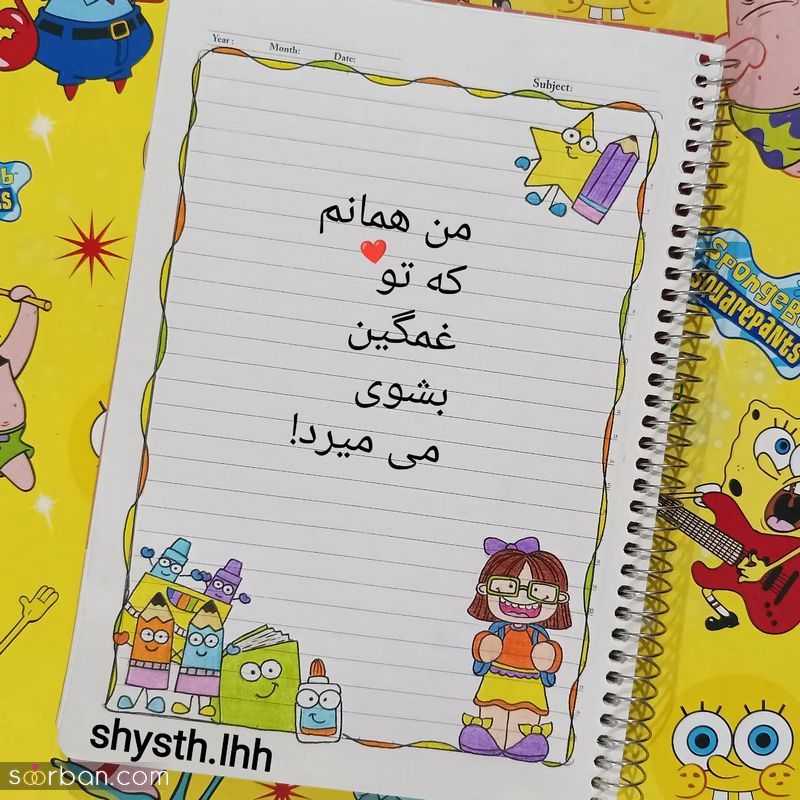 Year: Month: Date: Subject:
من همانم
که تو❤️
غمگین
بشوی
می میرد!
SpongeBob
SquarePants
shysth.lhh
soorban.com